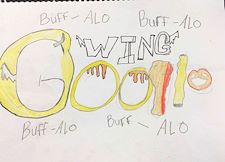 BUFF - ALO BUFF - ALO
WING
Google
BUFF - ALO BUFF - ALO